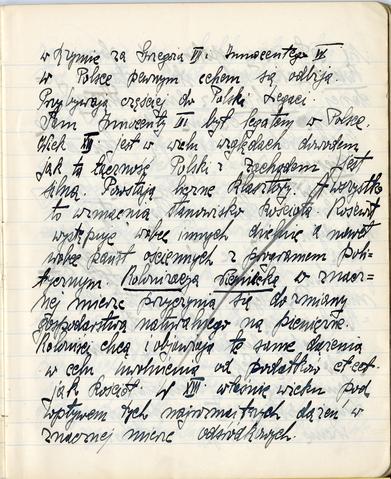 w Rzymie za Grzegorza III i Innocentego IV
w Polsce pewnym echem są odbija.
Przybywają częściej do Polski Legaci.
Sam Innocenty III. był legatem w Polsce.
Wiek XIII. jest w wielu względach dowodem
jak ta łączność Polski z Zachodem jest
silna. Powstają liczne klasztory. A wszystko
to wzmacnia stanowisko Kościoła. Kościół
występuje wobec innych dzielnic a nawet
wobec państ ościennych z programem poli-
tycznym. Kolonizacja niemiecka w znacz-
nej mierze przyczynia się do zmiany
gospodarstwa naturalnego na pieniężne.
Koloniści chcą i objawiają te same dążenia
w celu uwolnienia od podatków etcet.
jak Kościół. W XIII właśnie wieku pod
wpływem tych najrozmaitszych dążeń w
znacznej mierze odśrodkowych.